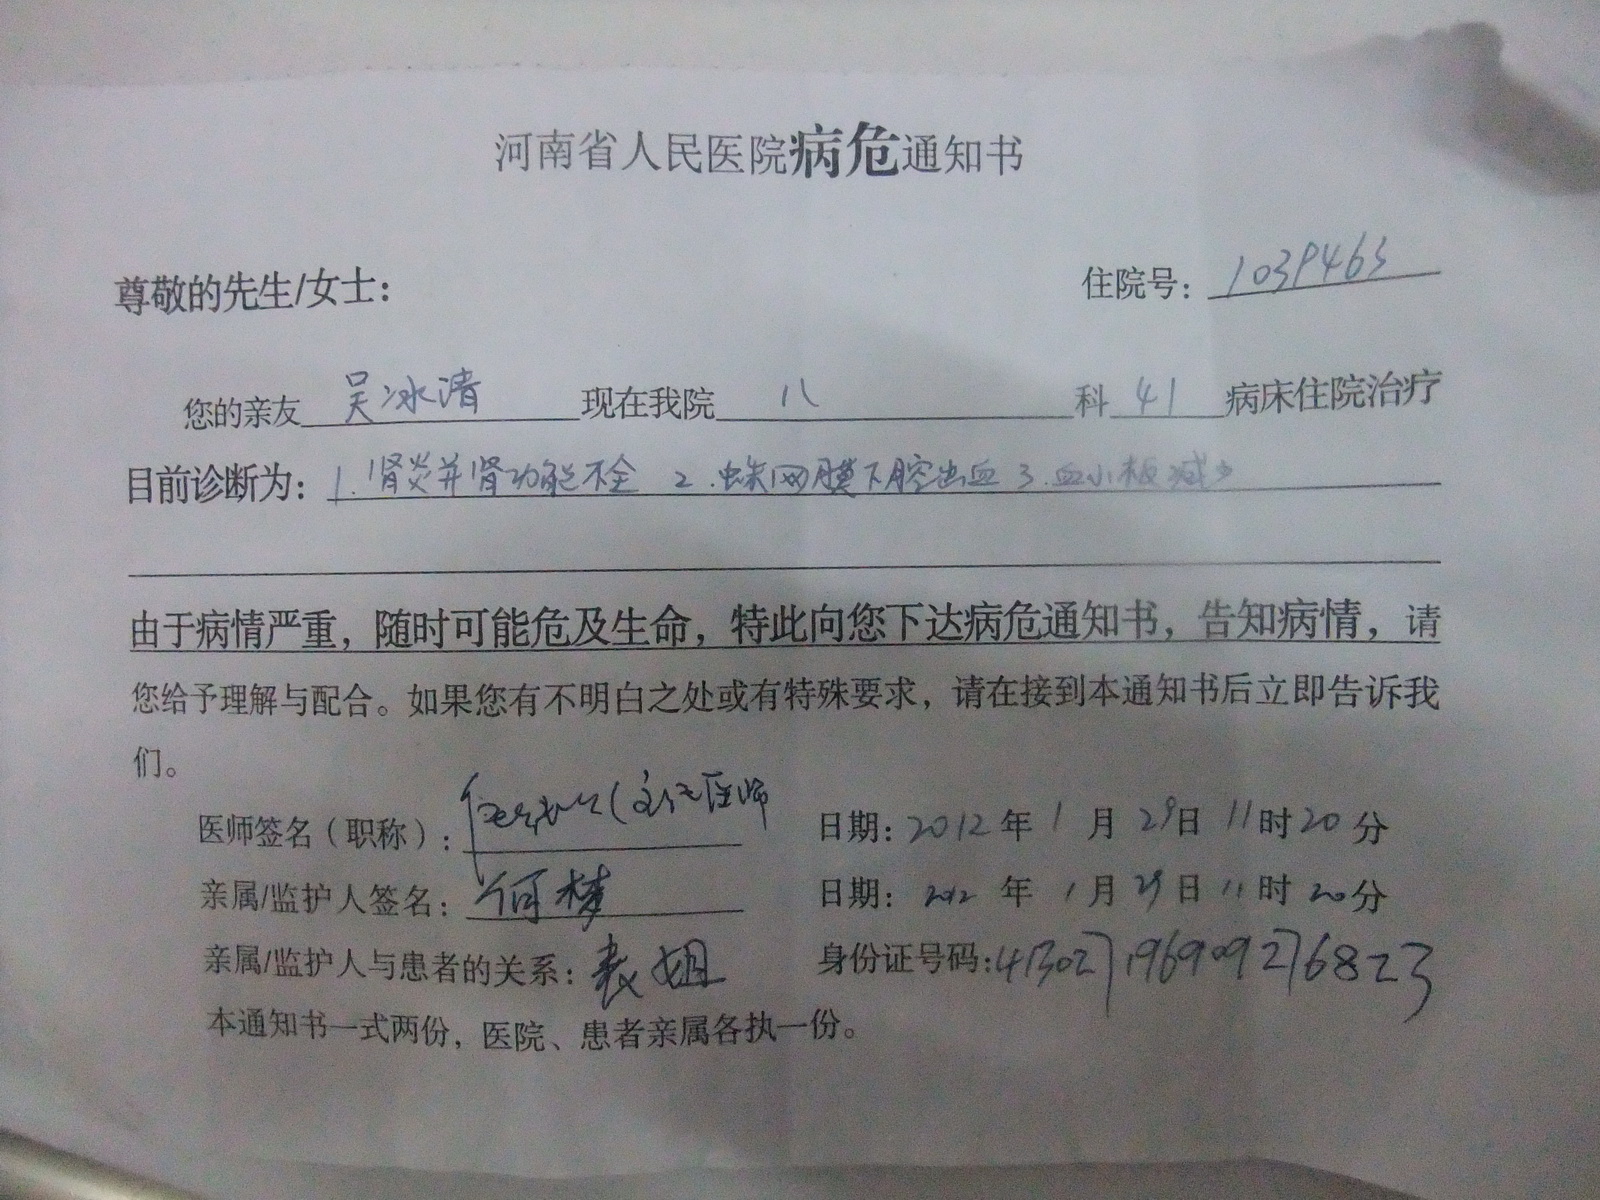 河南省人民医院病危通知书
尊敬的先生/女士： 住院号：1039463
您的亲友 吴冰清 现在我院 八 科 41 病床住院治疗
目前诊断为：1.肾炎并肾功能不全 2.蛛网膜下腔出血 3.血小板减少
由于病情严重，随时可能危及生命，特此向您下达病危通知书，告知病情，请
您给予理解与配合。如果您有不明白之处或有特殊要求，请在接到本通知书后立即告诉我
们。
医师签名（职称）： 医师 日期：2012年1月29日11时20分
亲属/监护人签名：何梅 日期：2012年1月29日11时20分
亲属/监护人与患者的关系：表姐 身份证号码：413027196909276823
本通知书一式两份，医院、患者亲属各执一份。